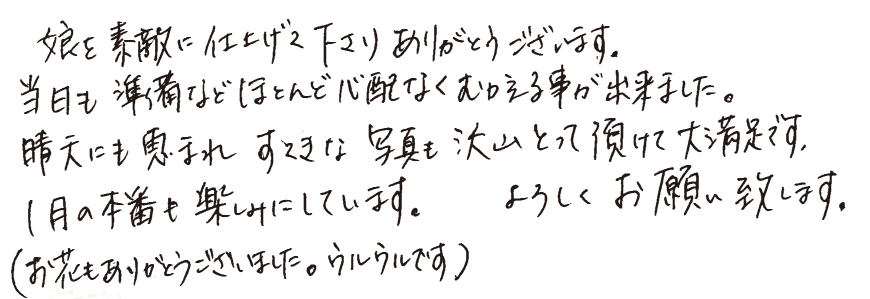 娘を素敵に仕上げて下さりありがとうございます。
当日も準備などほとんど心配なくむかえる事が出来ました。
晴天にも恵まれすてきな写真も沢山とって頂けて大満足です。
1月の本番も楽しみにしています。 よろしくお願い致します。
(お花もありがとうございました。ウルウルです)